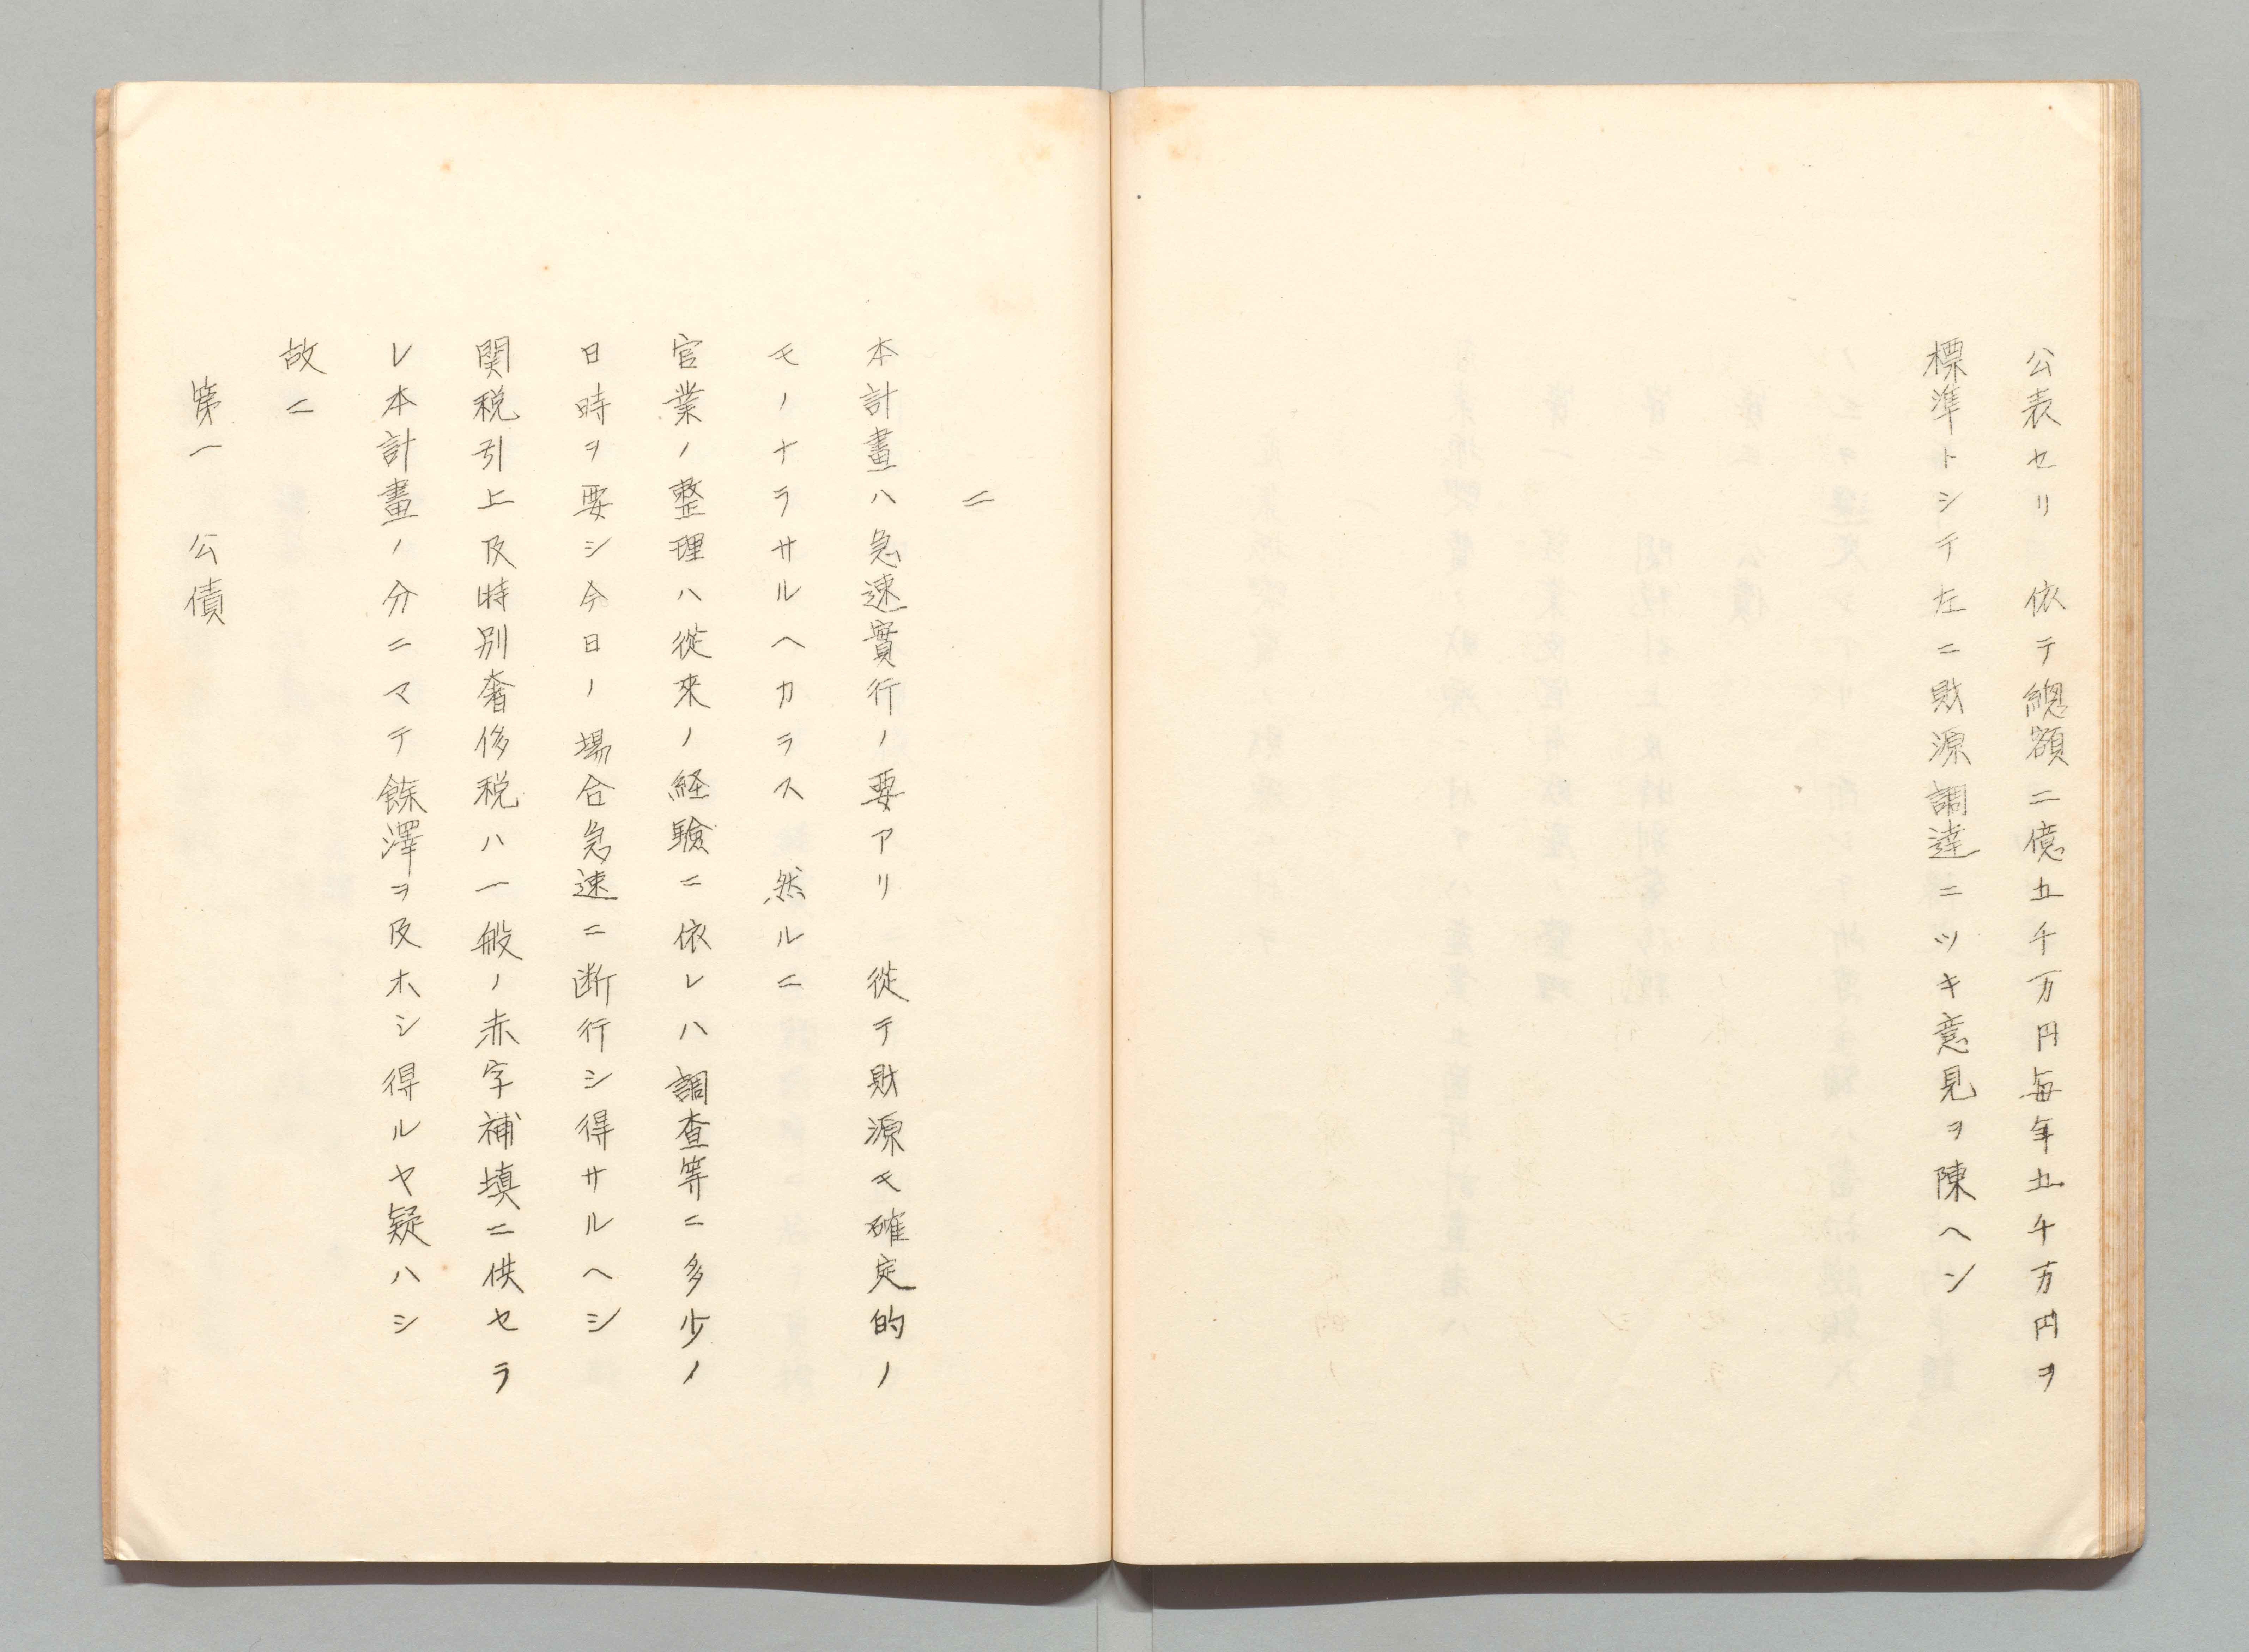 公表セリ　依テ總額二億五千万円毎年五千万円ヲ
標準トシテ左ニ財源調達ニツキ意見ヲ陳ヘン
二
本計畫ハ急速實行ノ要アリ　從テ財源モ確定的ノ
モノナラサルヘカラス　然ルニ
官業ノ整理ハ從來ノ経驗ニ依レハ調査等ニ多少ノ
日時ヲ要シ今日ノ場合急速ニ断行シ得サルヘシ
関税引上及特別奢侈税ハ一般ノ赤字補填ニ供セラ
レ本計畫ノ分ニマテ餘澤ヲ及ホシ得ルヤ疑ハシ
故ニ
第一　公債